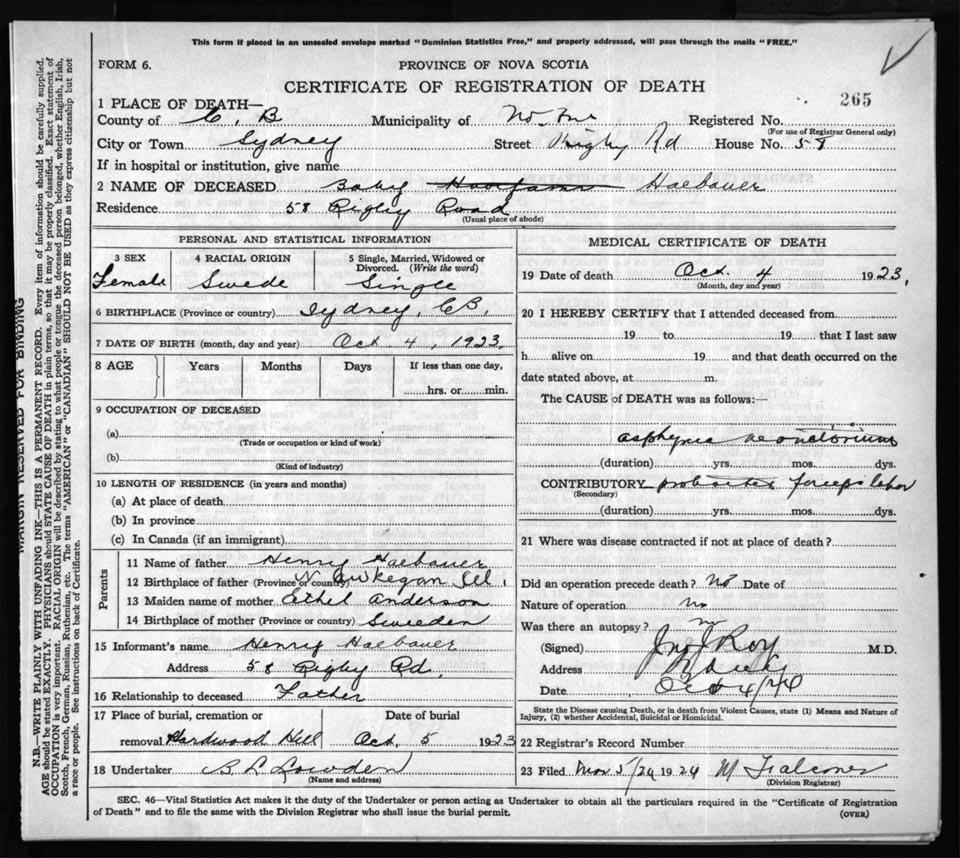 This form if placed in an unsealed envelope marked "Dominion Statistics Free," and properly addressed, will pass through the mails "FREE."
FORM 6. PROVINCE OF NOVA SCOTIA
CERTIFICATE OF REGISTRATION OF DEATH
265
1 PLACE OF DEATH—
County of C. B Municipality of Registered No.
(For use of Registrar General only)
City or Town Sydney Street Rigby Rd House No. 58
If in hospital or institution, give name
2 NAME OF DECEASED Baby Haebauer
Residence 58 Rigby Road
(Usual place of abode)
PERSONAL AND STATISTICAL INFORMATION
3 SEX 4 RACIAL ORIGIN 5 Single, Married, Widowed or Divorced. (Write the word)
Female Swede Single
6 BIRTHPLACE (Province or country) Sydney, CB,
7 DATE OF BIRTH (month, day and year) Oct 4, 1923
8 AGE Years Months Days If less than one day,
hrs. or min.
9 OCCUPATION OF DECEASED
(a)
(Trade or occupation or kind of work)
(b)
(Kind of industry)
10 LENGTH OF RESIDENCE (in years and months)
(a) At place of death
(b) In province
(c) In Canada (if an immigrant)
Parents
11 Name of father Henry Haebauer
12 Birthplace of father (Province or country) Waukegan Ill.
13 Maiden name of mother Ethel Anderson
14 Birthplace of mother (Province or country) Sweeden
15 Informant's name Henry Haebauer
Address 58 Rigby Rd.
16 Relationship to deceased Father
17 Place of burial, cremation or removal Hardwood Hill Date of burial Oct. 5 1923
18 Undertaker B L Lowden
(Name and address)
MEDICAL CERTIFICATE OF DEATH
19 Date of death Oct. 4 1923,
(Month, day and year)
20 I HEREBY CERTIFY that I attended deceased from
19 to 19 that I last saw
h alive on 19 and that death occurred on the
date stated above, at m.
The CAUSE of DEATH was as follows:—
asphyxia neonatorium
(duration) yrs. mos. dys.
CONTRIBUTORY protracted forceps labor
(Secondary)
(duration) yrs. mos. dys.
21 Where was disease contracted if not at place of death?
Did an operation precede death? No Date of
Nature of operation no
Was there an autopsy? no
(Signed) Jno J Roy M.D.
Address
Date Oct 4/24
State the Disease causing Death, or in death from Violent Causes, state (1) Means and Nature of
Injury, (2) whether Accidental, Suicidal or Homicidal.
22 Registrar's Record Number
23 Filed Mar 5/24 1924 M Falconer
(Division Registrar)
SEC. 46—Vital Statistics Act makes it the duty of the Undertaker or person acting as Undertaker to obtain all the particulars required in the "Certificate of Registration
of Death" and to file the same with the Division Registrar who shall issue the burial permit.
(OVER)
MARGIN RESERVED FOR BINDING
N.B.—WRITE PLAINLY WITH UNFADING INK—THIS IS A PERMANENT RECORD. Every item of information should be carefully supplied.
AGE should be stated EXACTLY. PHYSICIANS should STATE CAUSE OF DEATH in plain terms, so that it may be properly classified. Exact statement of
OCCUPATION is very important. RACIAL ORIGIN will be described by stating to what people or tongue the deceased person belonged, whether English, Irish,
Scotch, French, German, Russian, Ruthenian, etc. The terms "AMERICAN" or "CANADIAN" SHOULD NOT BE USED as they express citizenship but not
a race or people. See instructions on back of Certificate.